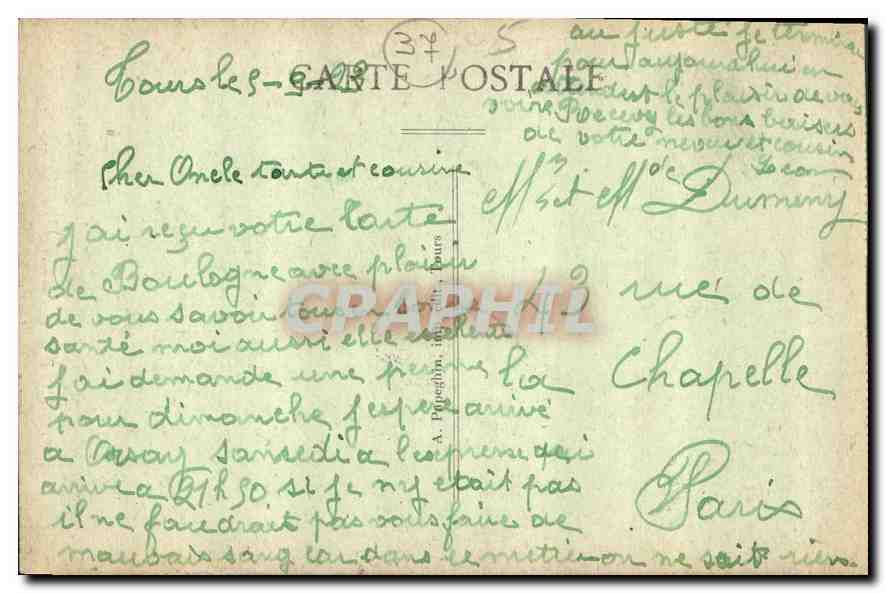 37
5
CARTE POSTALE
Tours le 5-9-
cher Oncle tante et cousine
j'ai reçu votre Carte
de Boulogne avec plaisir
de vous savoir tous en bonne
santé moi aussi elle excelente
j'ai demande une perme
pour dimanche j'espere arrivé
a Orsay samsedi a l'expresse qui
arrive a 21h50 si je n'y etait pas
il ne faudrait pas vous faire de
mauvais sang car dans ce metier on ne sait rien
au juste je termine
pour aujourd'hui en
attendant le plaisir de vous
voire Recevez les bons baisers
de votre neveu et cousin
Leon
Mr et Mde Dumeny
43 rue de
la Chapelle
Paris
A. Papeghin, imp.-édit., Tours
CPAPHIL